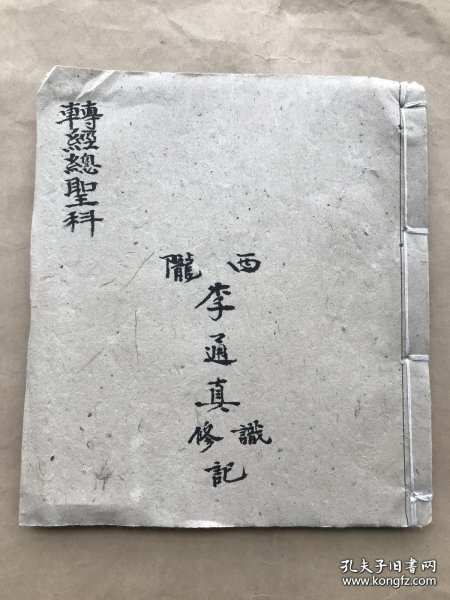 轉經總聖科
隴西
李通真
修識
記
孔夫子旧书网
www.kongfz.com